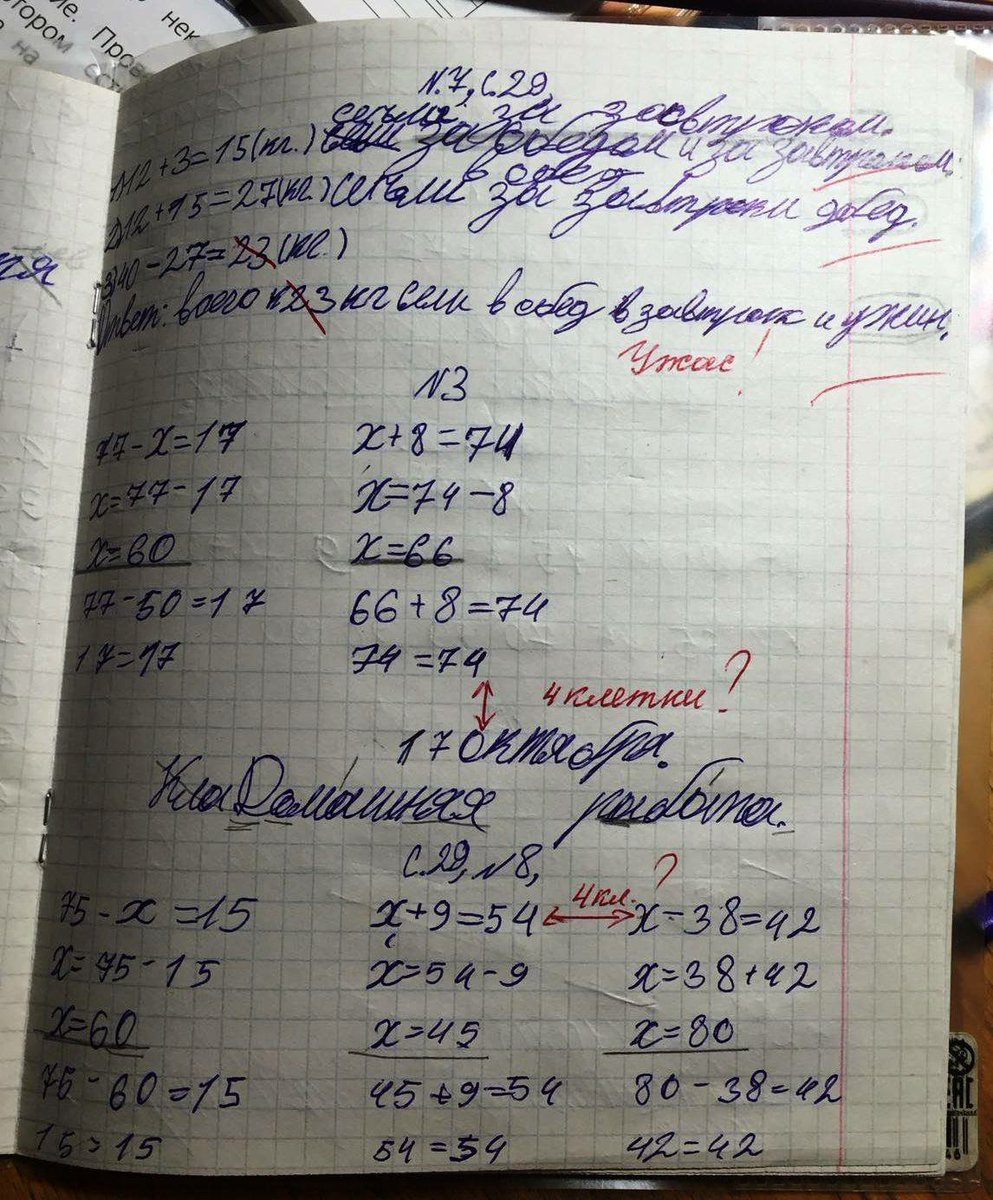 нек
ние. Пров
отором
на
сст
N.7, с.29,
съели за завтраком.
1)12+3=15(кг.) за обедом и за завтраком.
в обед
2)12+15=27(кг.) съели за завтраки обед.
3)40-27=23(кг.)
Ответ: всего 23 кг сели в обед в завтрак и ужин.
Ужас!
N3
77-x=17 x+8=74
x=77-17 x=74-8
x=60 x=66
77-50=17 66+8=74
17=17 74=74
4 клетки?
17 октября.
Кла Домашняя работа.
с.29, N8,
75-x=15 x+9=54 4кл.? x-38=42
x=75-15 x=54-9 x=38+42
x=60 x=45 x=80
75-60=15 45+9=54 80-38=42
15=15 54=54 42=42
EAC